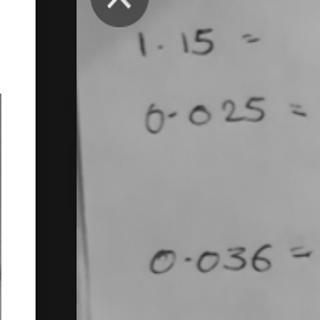 1.15 =
0.025 =
0.036 =